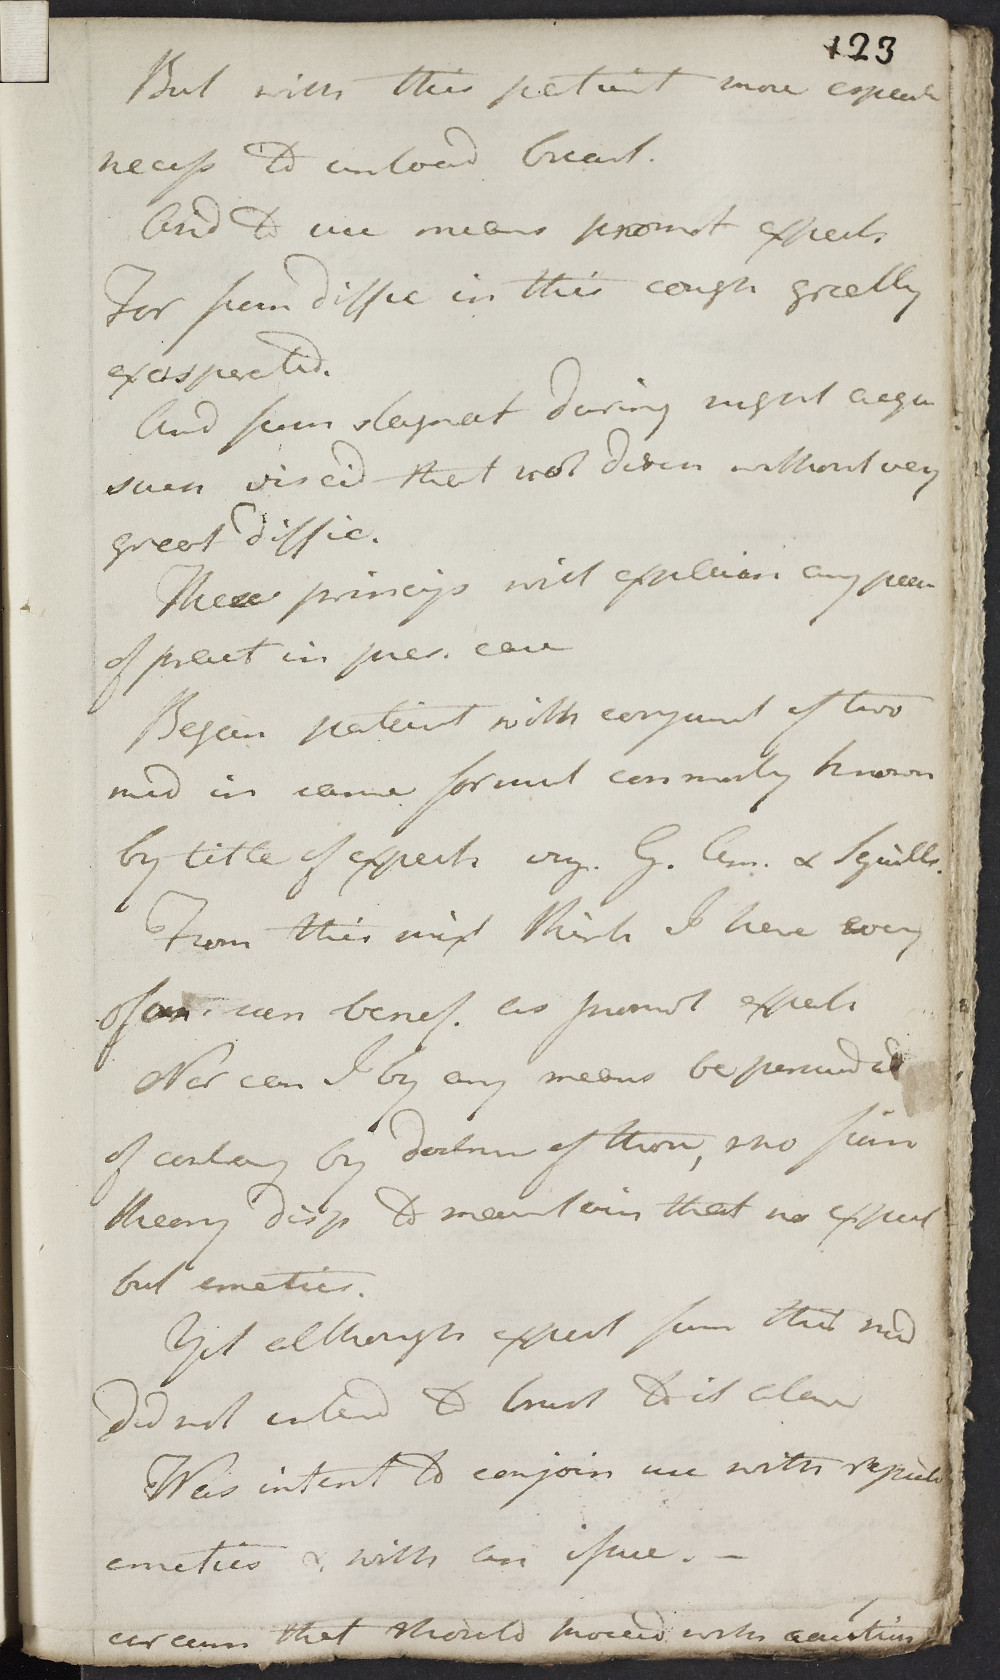 123
But with this patient more especi
necess to unload breast.
And to use means promot expect.
For from diffic in this cough greatly
exasperated.
And from stagnat during night acqu
such viscid that not disen without very
great diffic.
These princips will explain any
of pract in pres. case
Began patient with conjunct of two
med in same formul commonly known
by title of expect viz. G. Am. & Squills.
From this mixt think I have very
often seen benef. as promot expect
Nor can I by any means be persuaded
of contrary by doctrine of those, who from
theory disp to maintain that no expect
but emetics.
Yet although expect from this med
Did not intend to trust to it alone
Was intent to conjoin use with repeated
emetics & with an issue. –
circum that should proceed with caution